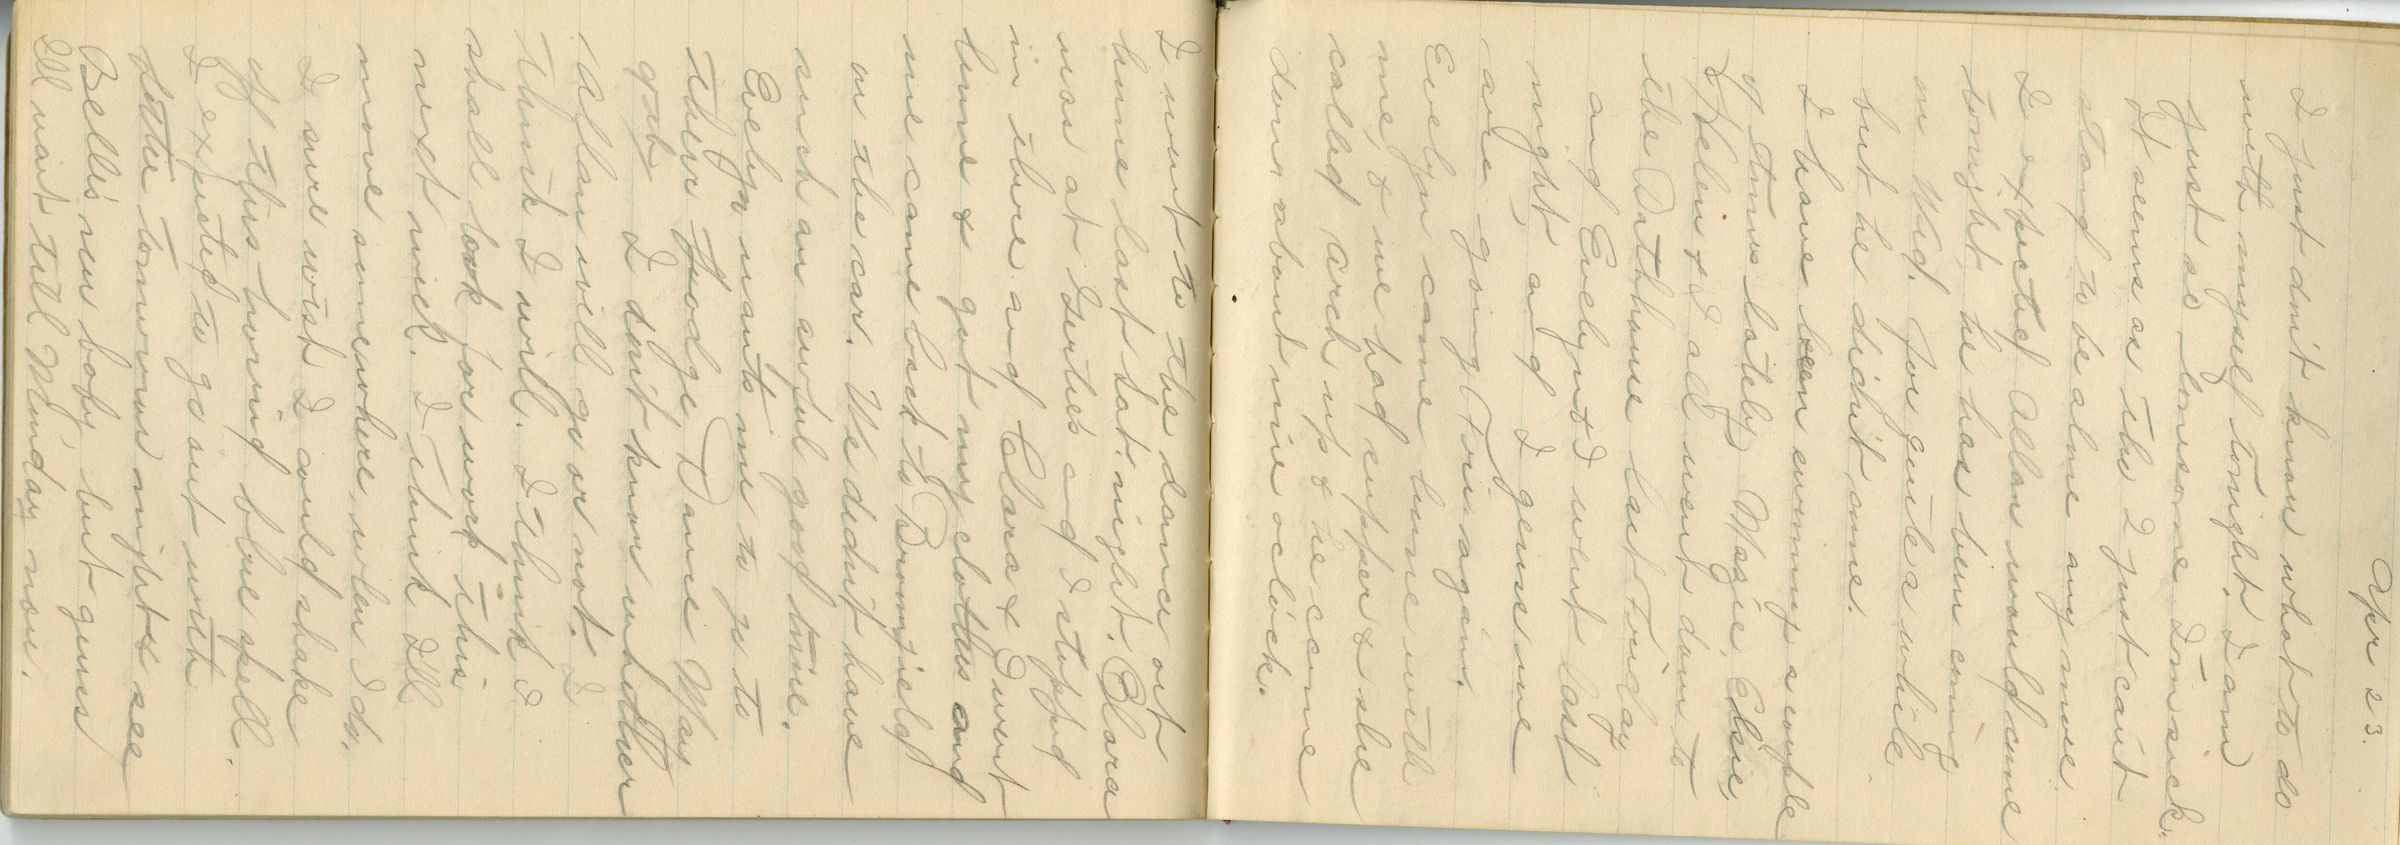 Apr 23.
I just don't know what to do
with myself tonight. I am
just so lonesome I'm sick.
It seems as tho I just can't
stand to be alone any more
I expected Allan would come
tonight, he has been coming
on Wed. for quite a while
but he didn't come.
I have been swimming a couple
of times lately. Mazie, Elsie,
Helen & I all went down to
the Bathhouse last Friday
and Evelyn & I went last
night and I guess we
are going Fri. again.
Evelyn came home with
me, & we had supper & she
called Arch up & he came
down about nine oclock.
I went to the dance out
home last Sat. night. Clara
was at Gertie's and I stopped
in there and Clara & I went
home & got my clothes and
we came back to Broomfield
on the car. We didn't have
such an awful good time.
Evelyn wants me to go to
there Hodge Dance May
9th I don't know whether
Allan will go or not. I
think I will. I think I
shall look for work this
next week. I think I'll
move somewhere when I do.
I sure wish I could shake
off this horrid blue spell.
I expected to go out with
Lottie tomorrow night & see
Belle's new baby, but guess
I'll wait till Monday now.